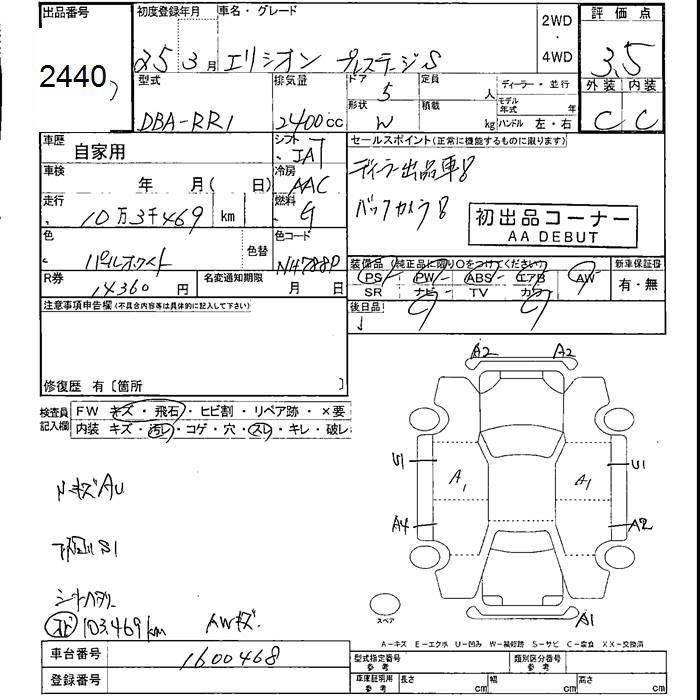 出品番号 初度登録年月 車名・グレード 2WD・4WD 評価点
2440 25 3月 エリシオン プレステージS 3.5
型式 排気量 ドア 5 定員 人 ディーラー・並行 外装 内装
DBA-RR1 2400cc 形状 W 積載 kg モデル年式 年 ハンドル 左・右 C C
車歴 自家用 シフト IAT セールスポイント(正常に機能するものに限ります)
車検 年 月( 日) 冷房 AAC ディーラー出品車
走行 10万3千469 km 燃料 G バックカメラ
初出品コーナー
AA DEBUT
色 パールホワイト 色替 色コード NH788P
装備品 (純正品に限り○をつけてください) 新車保証書
PS PW ABS エアB AW 有・無
SR ナビ TV カワ
R券 14360 円 名変通知期限 月 日
後日品
注意事項申告欄(不具合内容等は具体的に記入して下さい)
修復歴 有〔箇所 〕
検査員記入欄 FW キズ・飛石・ヒビ割・リペア跡・×要
内装 キズ・汚レ・コゲ・穴・スレ・キレ・破レ
A2 A2
U1 A1 A1 U1
A4 A2
A1
スペア
S1
103,469km AWキズ
A-キズ E-エクボ U-凹み W-補修跡 S-サビ C-腐食 XX-交換済
車台番号 1600468
登録番号
型式指定番号 参考 類別区分番号 参考
車庫証明用 参考 長さ cm 幅 cm 高さ cm